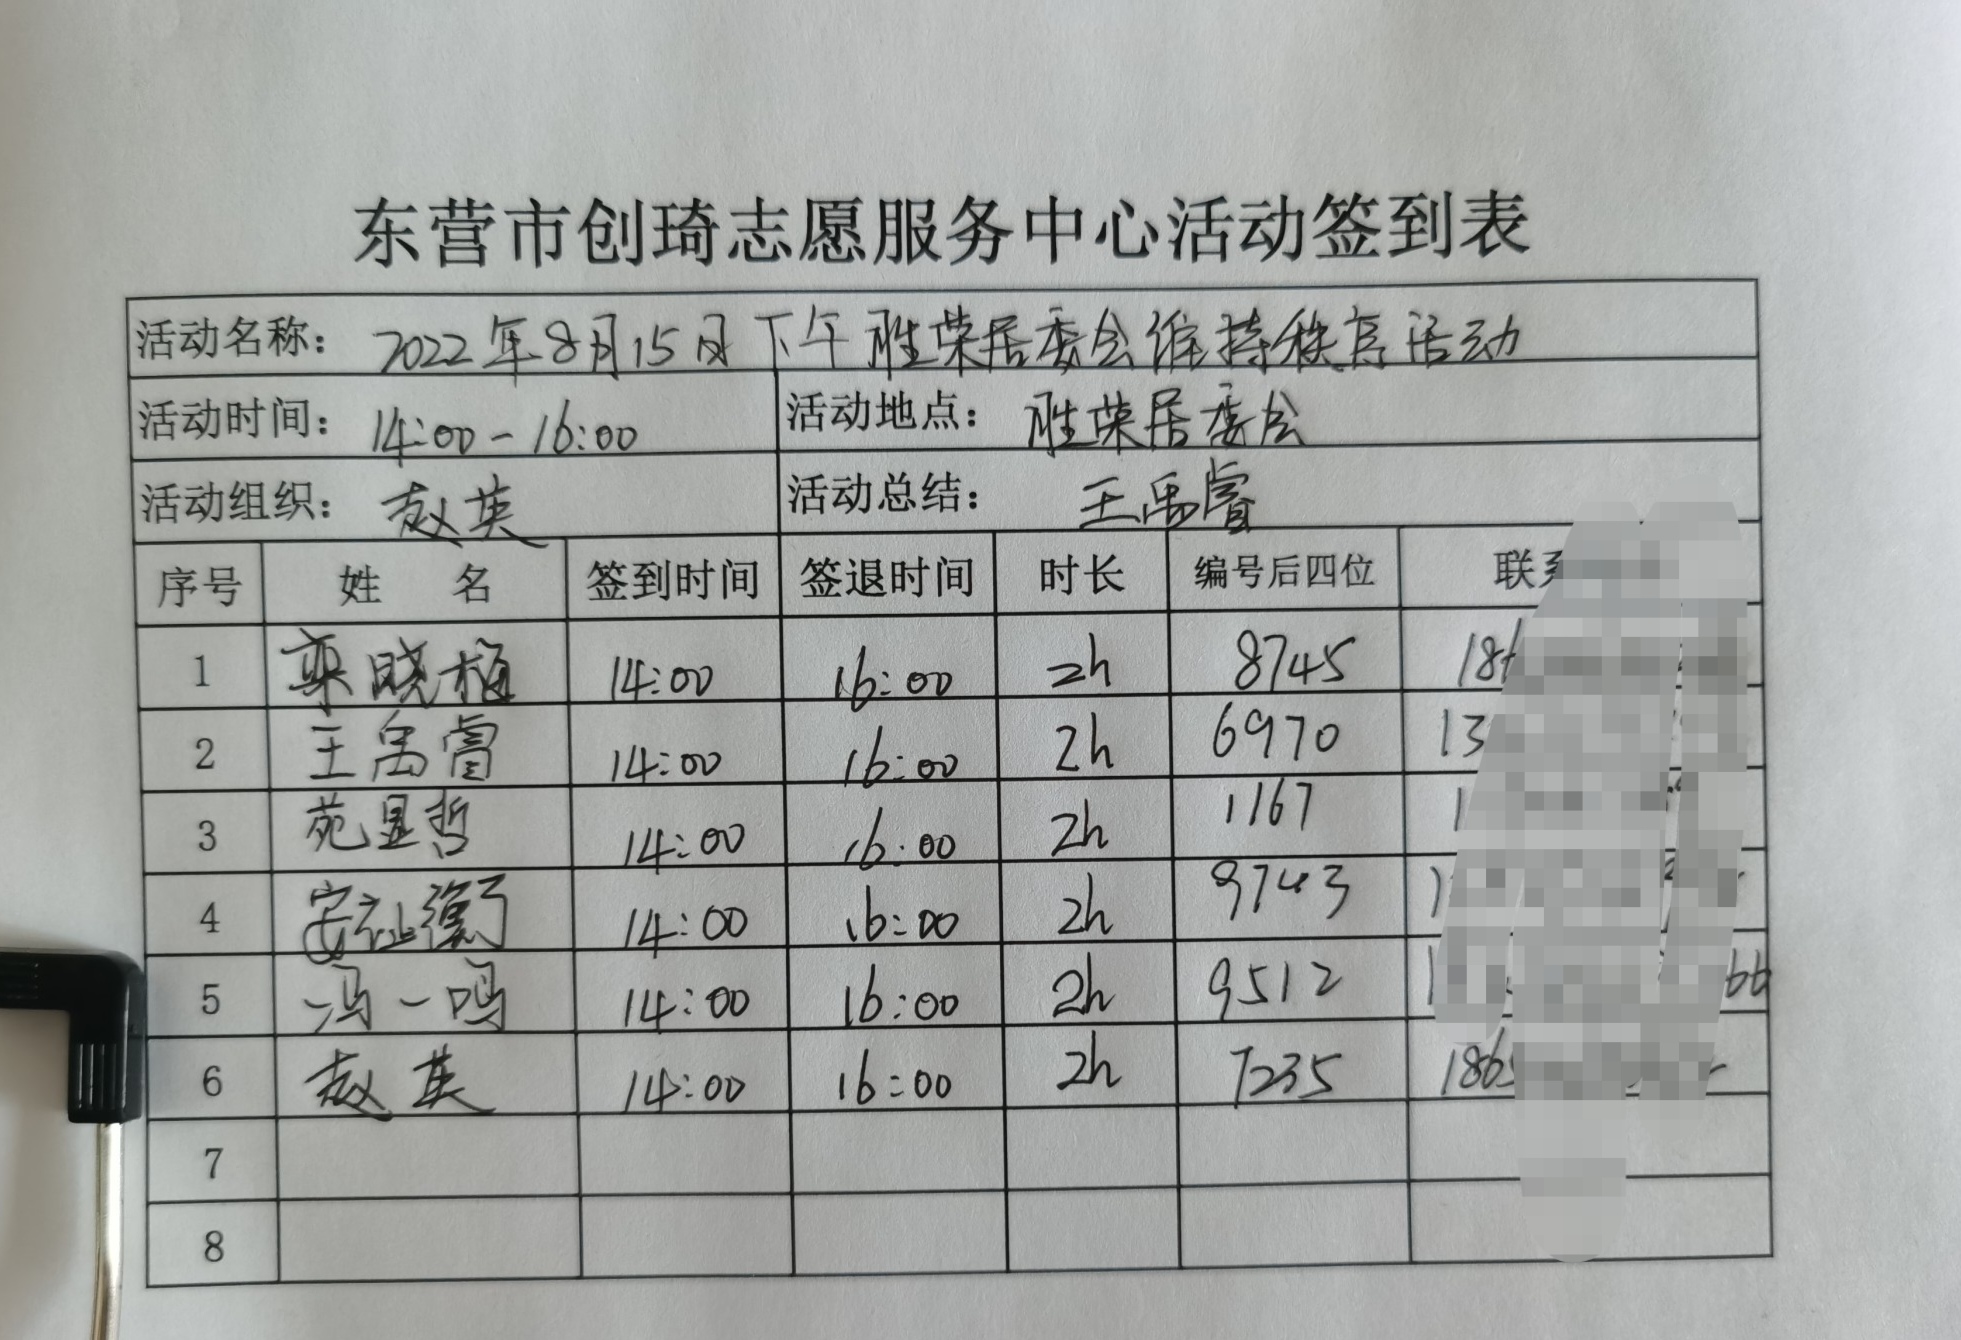 东营市创琦志愿服务中心活动签到表
活动名称： 2022年8月15日下午胜荣居委会维持秩序活动
活动时间： 14:00-16:00 活动地点： 胜荣居委会
活动组织： 赵英 活动总结： 王禹睿
序号 姓名 签到时间 签退时间 时长 编号后四位 联系
1 栾晓梅 14:00 16:00 2h 8745 18
2 王禹睿 14:00 16:00 2h 6970 13
3 苑显哲 14:00 16:00 2h 1167 1
4 安祉衡 14:00 16:00 2h 9743 1
5 冯一鸣 14:00 16:00 2h 9512 1 66
6 赵英 14:00 16:00 2h 7235 186
7
8